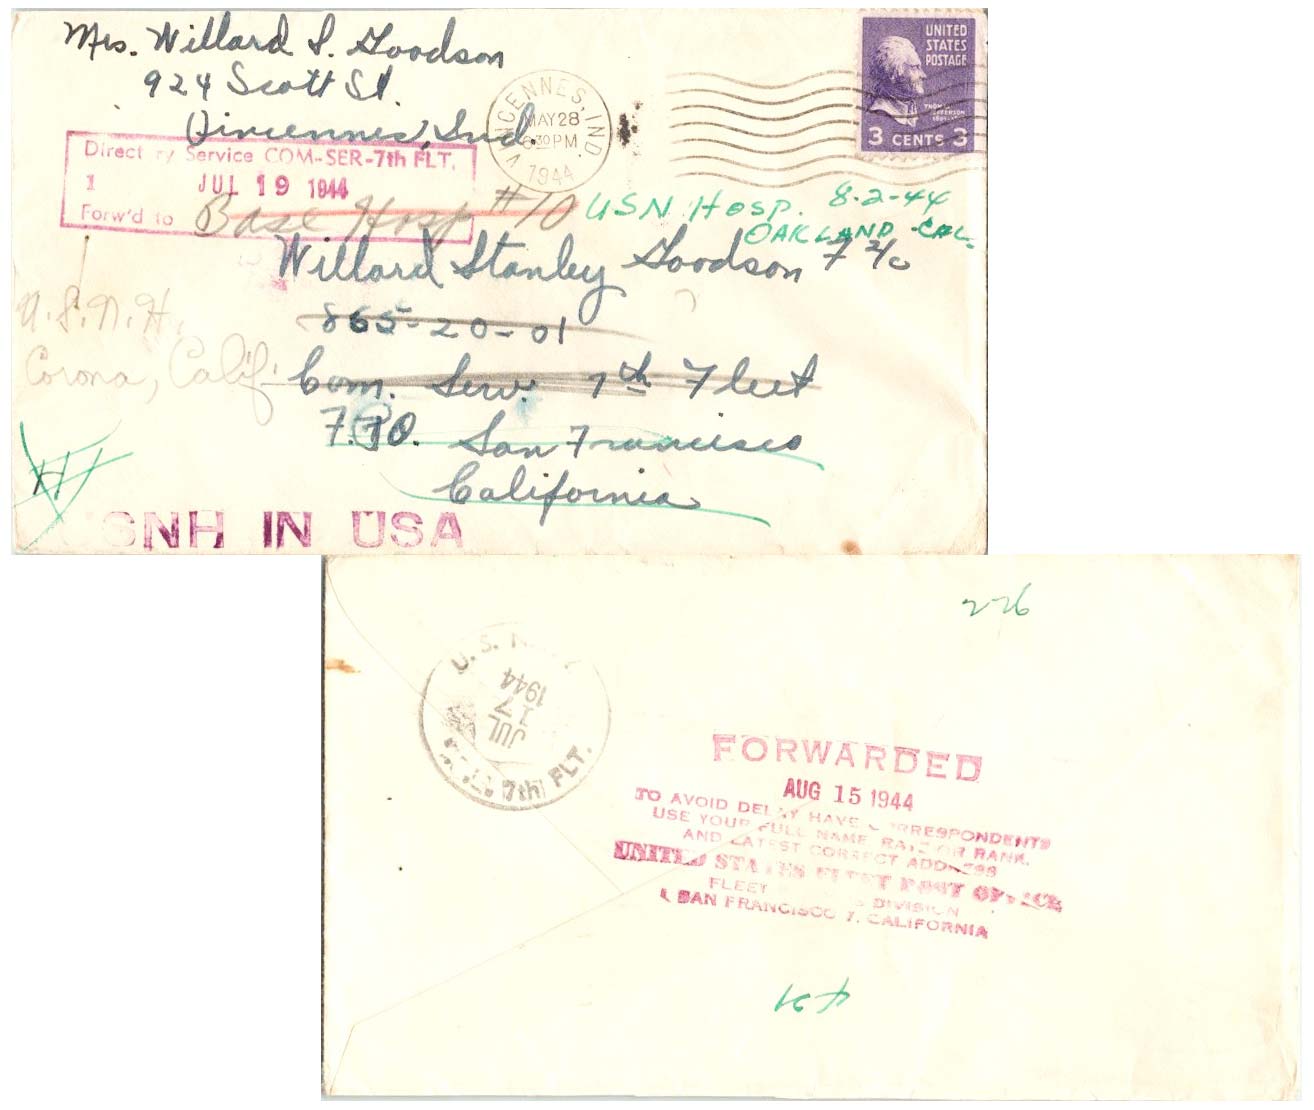 Mrs. Willard S. Goodson
924 Scott St.
Vincennes, Ind.
VINCENNES, IND.
MAY 28
6 30 PM
1944
UNITED
STATES
POSTAGE
THOMAS
JEFFERSON
3 CENTS 3
Directory Service COM-SER-7th FLT.
1 JUL 19 1944
Forw'd to Base Hosp #10
USN HOSP. 8-2-44
OAKLAND CAL.
Willard Stanley Goodson F 2/c
865-20-01
Com. Serv. 7th Fleet
F.P.O. San Francisco
California
U.S.N.H.
Corona, Calif.
USNH IN USA
2-26
U.S. NAVY
JUL
17
1944
7th FLT.
FORWARDED
AUG 15 1944
TO AVOID DELAY HAVE CORRESPONDENTS
USE YOUR FULL NAME, RATE OR RANK,
AND LATEST CORRECT ADDRESS
UNITED STATES FLEET POST OFFICE
FLEET DIVISION
SAN FRANCISCO 7, CALIFORNIA